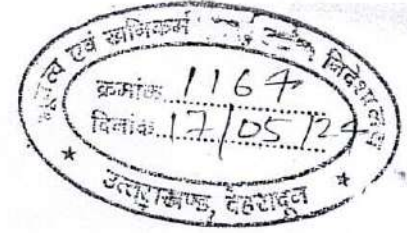 भूतत्व एवं खनिकर्म निदेशालय
क्रमांक 1164
दिनांक 17/05/24
★ उत्तराखण्ड, देहरादून ★